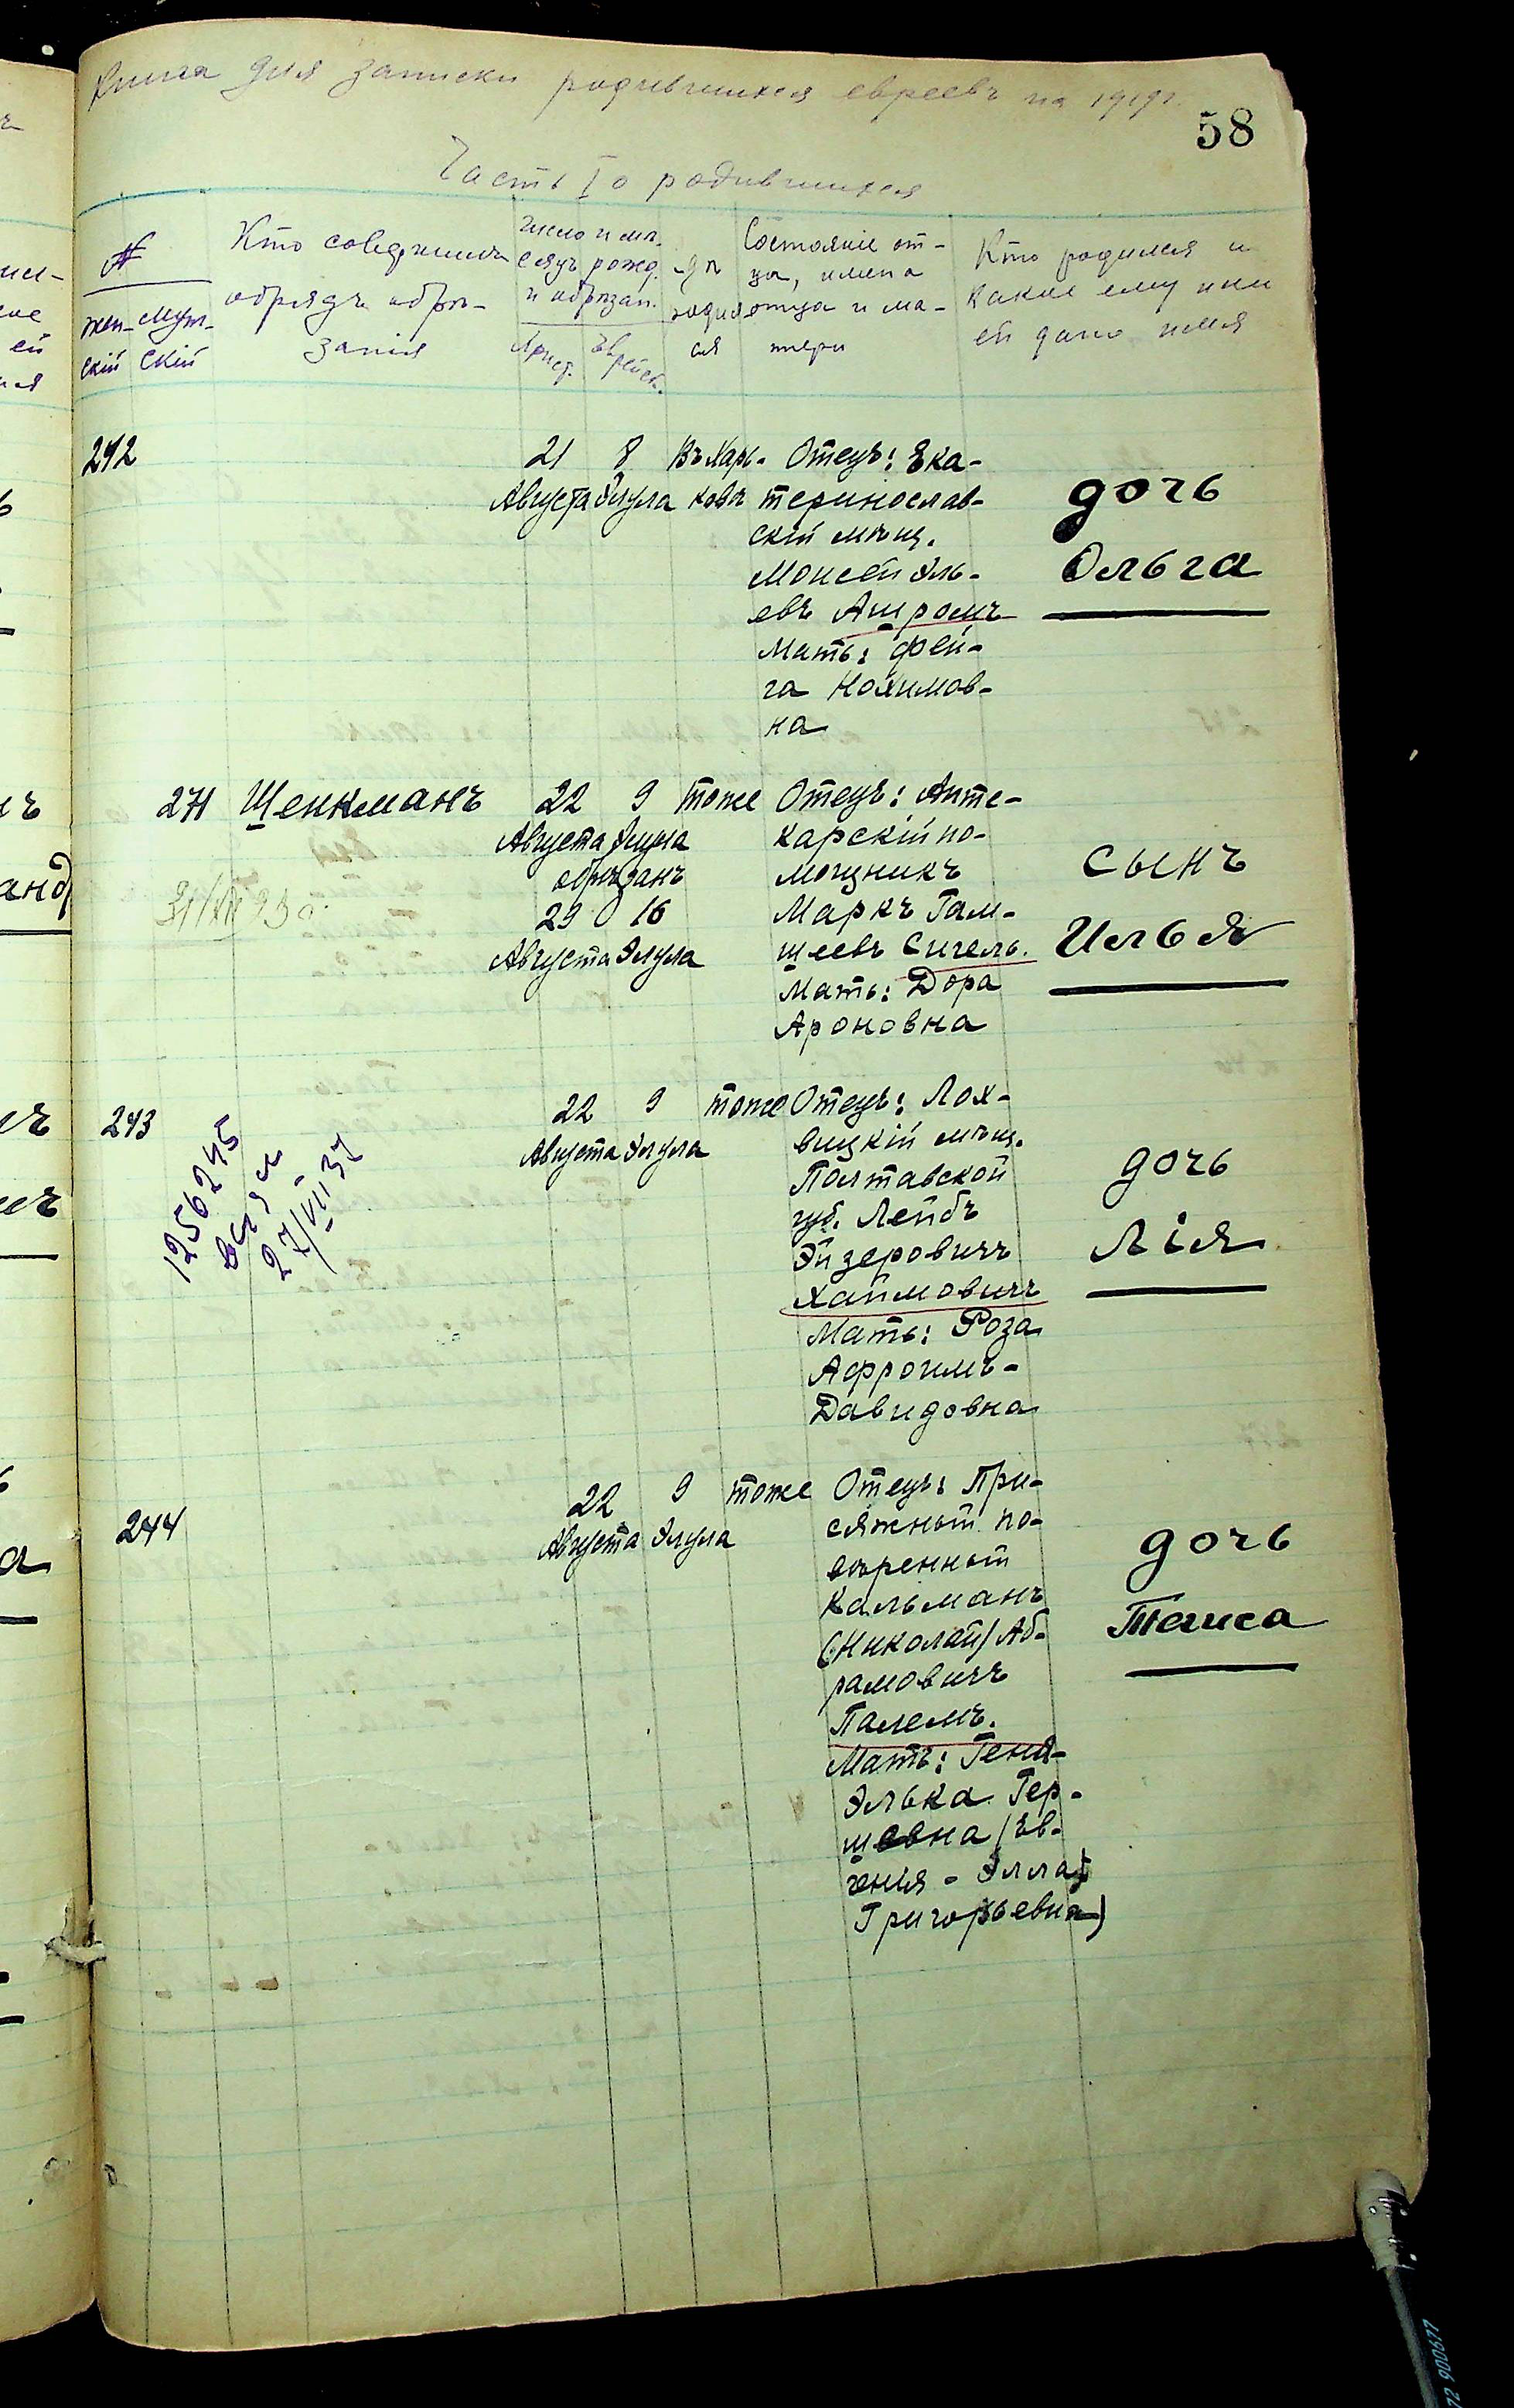 Книга для записки родившихся евреевъ на 1919г.
58
Часть I о родившихся
№
жен-скій
муж-скій
Кто совершилъ
обрядъ обрѣ-
занія
Число и мѣ-
сяцъ рожд.
и обрѣзан.
Христ.
Еврейск.
гдѣ
родил
ся
Состояніе от-
ца, имена
отца и ма-
тери
Кто родился и
какое ему или
ей дано имя
242
21 8 Въ Харь-
Августа Элула ковѣ
Отецъ: Ека-
теринослав-
скій мѣщ.
Моисей Эль-
евъ Ашромъ
Мать: Фей-
га Нохимов-
на
дочь
Ольга
271 Шенкманъ 22 9 тоже
Августа Элула
обрѣзанъ
29 16
Августа Элула
Отецъ: Апте-
карскій по-
мощникъ
Маркъ Гам-
шеевъ Сигель.
Мать: Дора
Ароновна
сынъ
Илья
243
1256245
27/VII 37
22 9 тоже
Августа Элула
Отецъ: Лох-
вицкій мѣщ.
Полтавской
губ. Лейбъ
Эйзеровичъ
Хаймовичъ
Мать: Роза
Афроимъ-
Давидовна
дочь
Лія
244
22 9 тоже
Августа Элула
Отецъ: При-
сяжный по-
вѣренный
Кальманъ
(Николай) Аб-
рамовичъ
Палемъ.
Мать: Геня-
Элька Гер-
шовна (Ев-
генія - Элла
Григорьевна)
дочь
Таиса